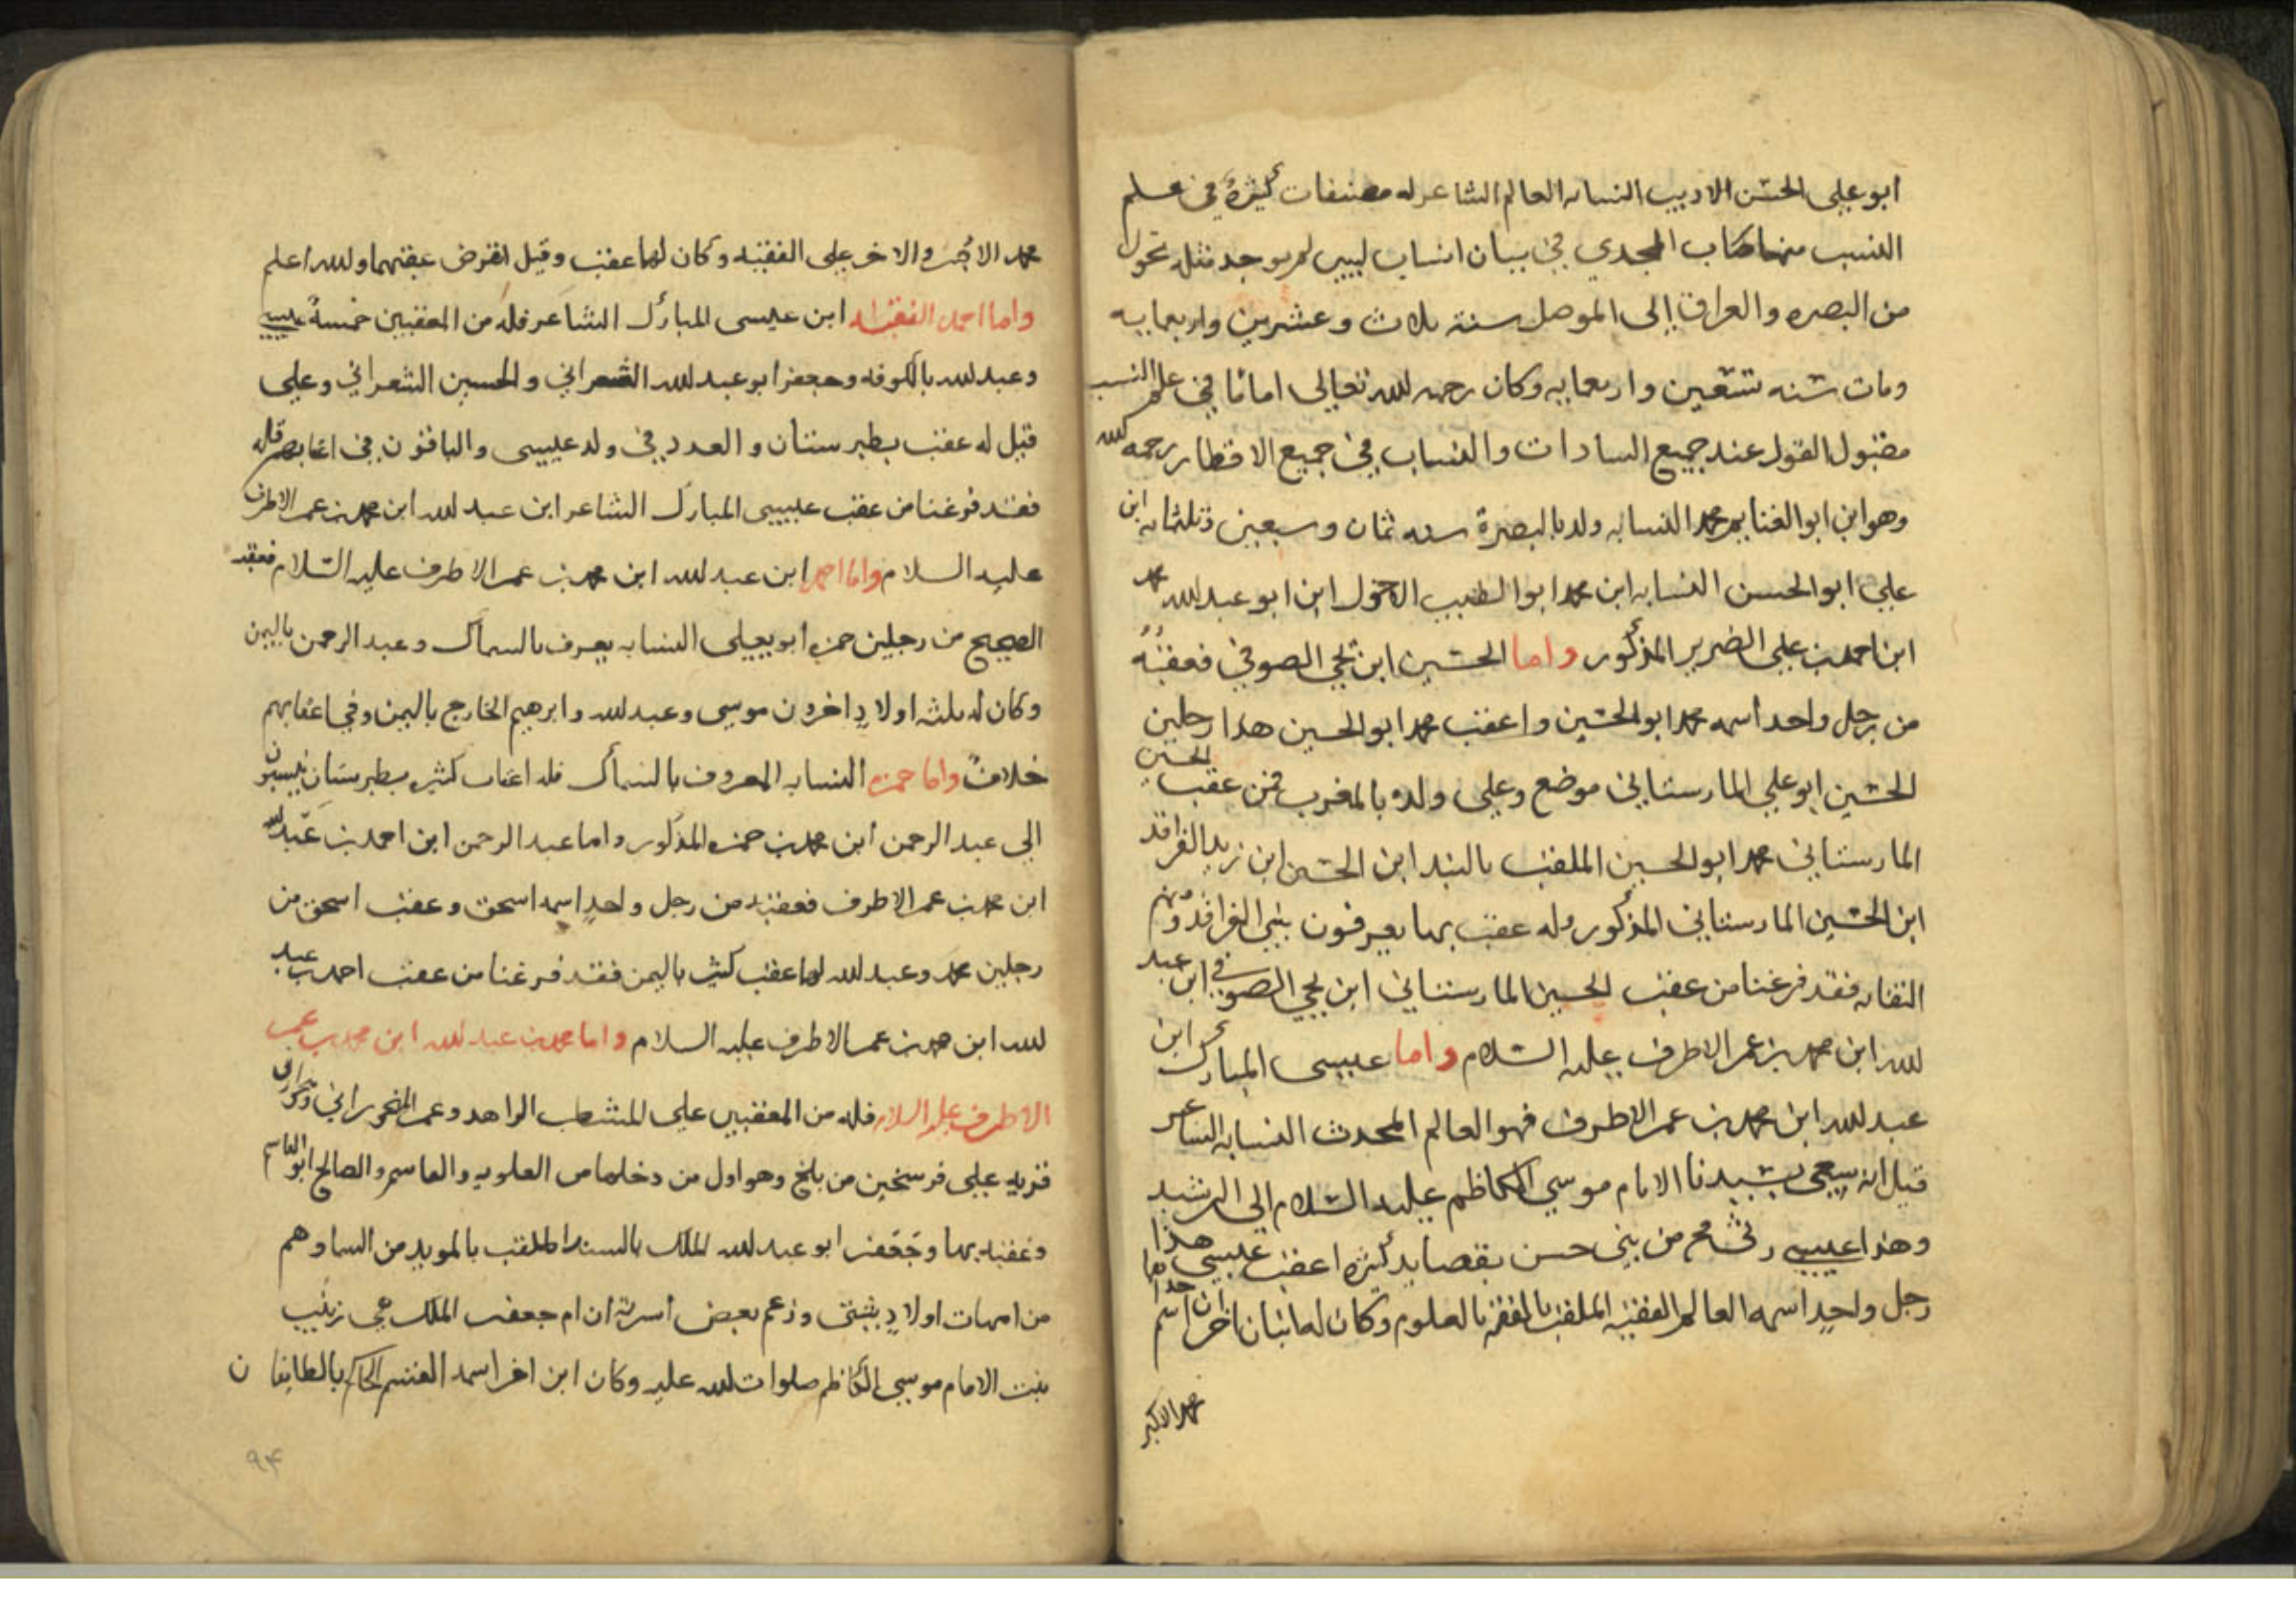 ابو علي الحسن الاديب النسابه العالم الشاعر له مصنفات كثيرة في علم
النسب منها كتاب المجدي في بيان انساب ليس لم يوجد مثله تحول
من البصره والعراق إلى الموصل سنة ثلاث وعشرين واربعمايه
ومات سنه تسعين واربعمايه وكان رحمه الله تعالى اماما في علم النسب
مقبول القول عند جميع السادات والنساب في جميع الاقطار رحمه الله
وهو ابن ابو الغنايم محمد النسابه ولد بالبصرة سنه ثمان وسبعين وثلثمايه ابن
علي ابو الحسن النسابه ابن محمد ابو الطيب الاحول ابن ابو عبد الله محمد
ابن احمد بن علي الضرير المذكور واما الحسين ابن يحيى الصوفي فعقبه
من رجل واحد اسمه محمد ابو الحسين واعقب محمد ابو الحسين هذا رجلين
الحسين ابو علي المارستاني موضع وعلي ولده بالمغرب فمن عقب الحسين
المارستاني محمد ابو الحسين الملقب بالبند ابن الحسين ابن زيد الفراقد
ابن الحسين المارستاني المذكور وله عقب بها يعرفون ببني الفراقد ومنهم
النقابه فقد فرغنا من عقب الحسين المارستاني ابن يحيى الصوفي ابن عبد
الله ابن محمد بن عمر الاطرف عليه السلام واما عيسى المبارك ابن
عبد الله ابن محمد بن عمر الاطرف فهو العالم المحدث النسابه الشاعر
قيل انه سعى بسيدنا الامام موسى الكاظم عليه السلام الى الرشيد
وهذا عيسى رثى من بني حسن بقصايد كثيره اعقب عيسى هذا
رجل واحد اسمه العالم الفقيه الملقب بالفقه بالعلوم وكان له ابنان اخران اسم احداهما
محمد الاكبر
محمد الاكبر والاخر علي الفقيه وكان لهما عقب وقيل انقرض عقبهما والله اعلم
واما احمد الفقيه ابن عيسى المبارك الشاعر فله من المعقبين خمسة عيسى
وعبد الله بالكوفه وجعفر ابو عبد الله الشعراني والحسين الشعراني وعلي
قيل له عقب بطبرستان والعدد في ولد عيسى والباقون في اعقابهم قله
فقد فرغنا من عقب عيسى المبارك الشاعر ابن عبد الله ابن محمد بن عمر الاطرف
عليه السلام واما احمد ابن عبد الله ابن محمد بن عمر الاطرف عليه السلام فعقبه
الصحيح من رجلين حمزه ابو يعلى النسابه يعرف بالسماك وعبد الرحمن باليمن
وكان له ثلثه اولاد اخرون موسى وعبد الله وابرهيم الخارج باليمن وفي اعقابهم
خلاف واما حمزه النسابه المعروف بالسماك فله اعقاب كثيره بطبرستان ينسبون
الى عبد الرحمن ابن محمد بن حمزه المذكور واما عبد الرحمن ابن احمد بن عبد الله
ابن محمد بن عمر الاطرف فعقبه من رجل واحد اسمه اسحق وعقب اسحق من
رجلين محمد وعبد الله لهما عقب كثير باليمن فقد فرغنا من عقب احمد بن عبد
الله ابن محمد بن عمر الاطرف عليه السلام واما محمد بن عبد الله ابن محمد بن عمر
الاطرف عليه السلام فله من المعقبين علي المشطب الزاهد وعمر المنجوراني ومنجوران
قريه على فرسخين من بلخ وهو اول من دخلها من العلويه والقاسم والصالح ابو القاسم
وعقبه بها وجعفر ابو عبد الله الملك بالسند الملقب بالمويد من السما وهم
من امهات اولاد شتى وزعم بعض اسرته ان ام جعفر الملك هي زينب
بنت الامام موسى الكاظم صلوات الله عليه وكان ابن اخر اسمه القسم الحاكم بالطايفان
٩٤